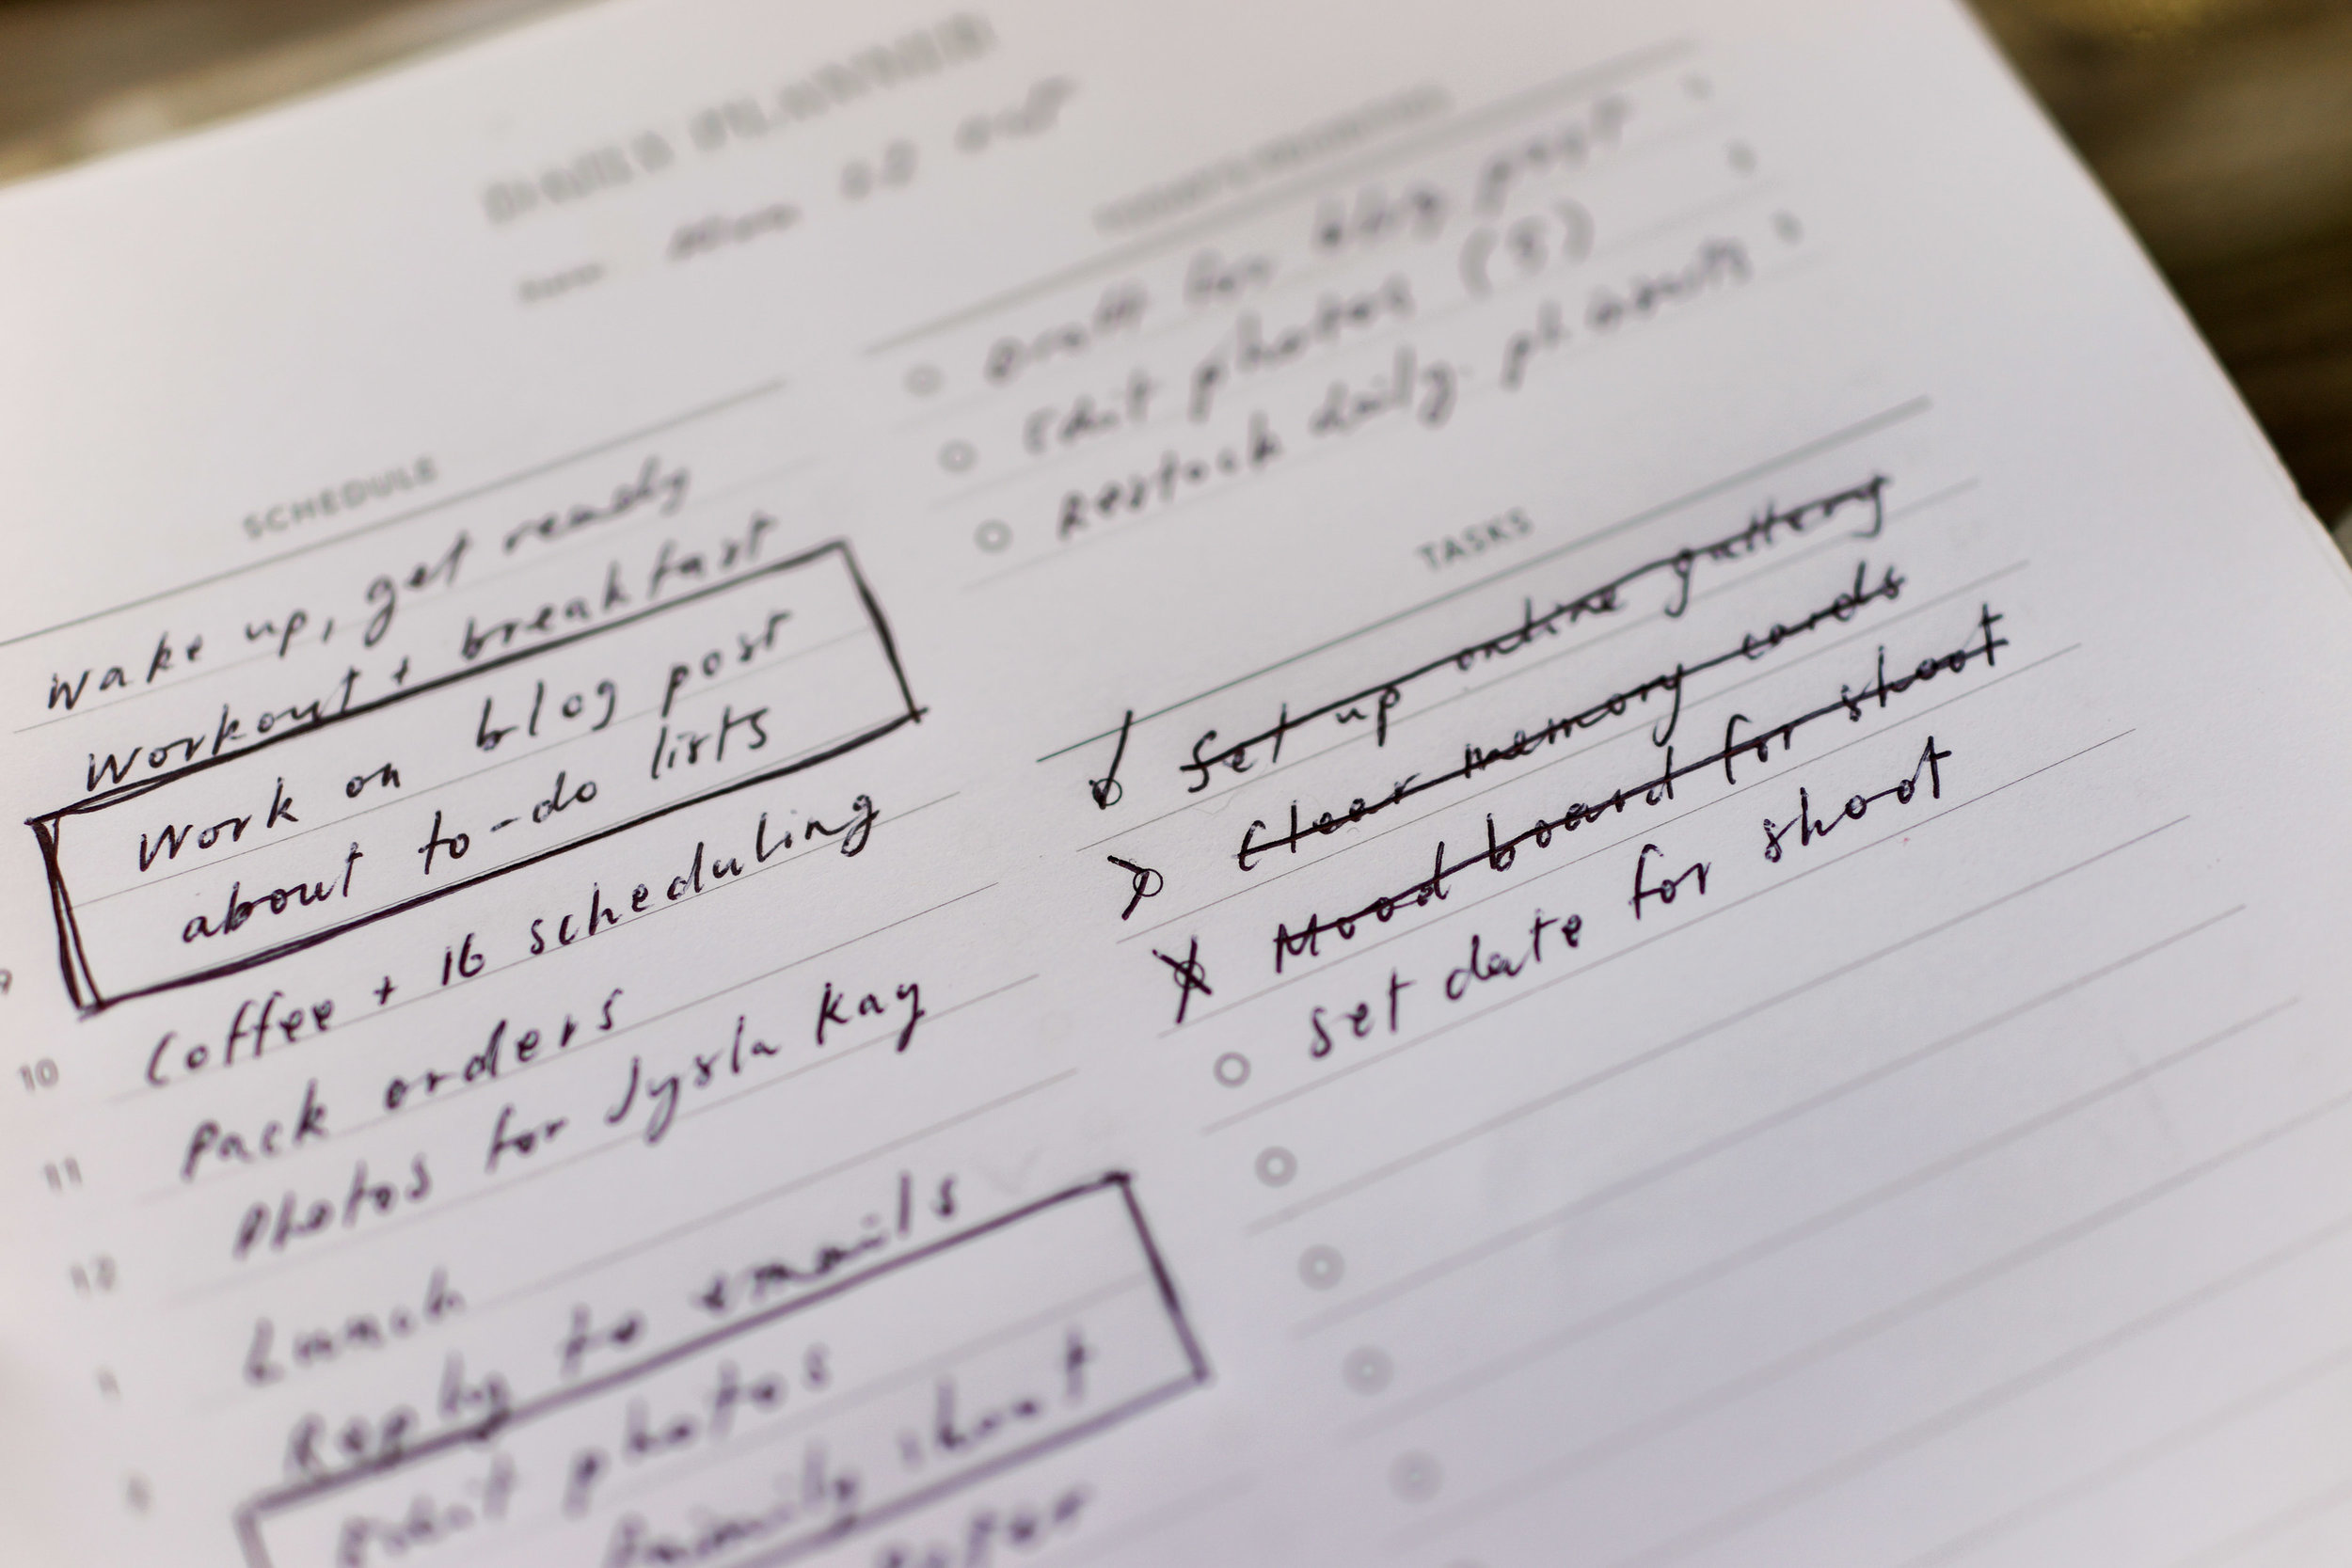 DAILY PLANNER
SCHEDULE
Wake up, get ready
Workout + breakfast
Work on blog post
about to-do lists
10 Coffee + IG scheduling
11 Pack orders
12 Photos for Jysla Kay
Lunch
1 Reply to emails
Edit photos
Family shoot
Draft for blog post
Edit photos (5)
Restock daily pl. inserts
TASKS
Set up online gallery
Clear memory cards
Mood board for shoot
Set date for shoot